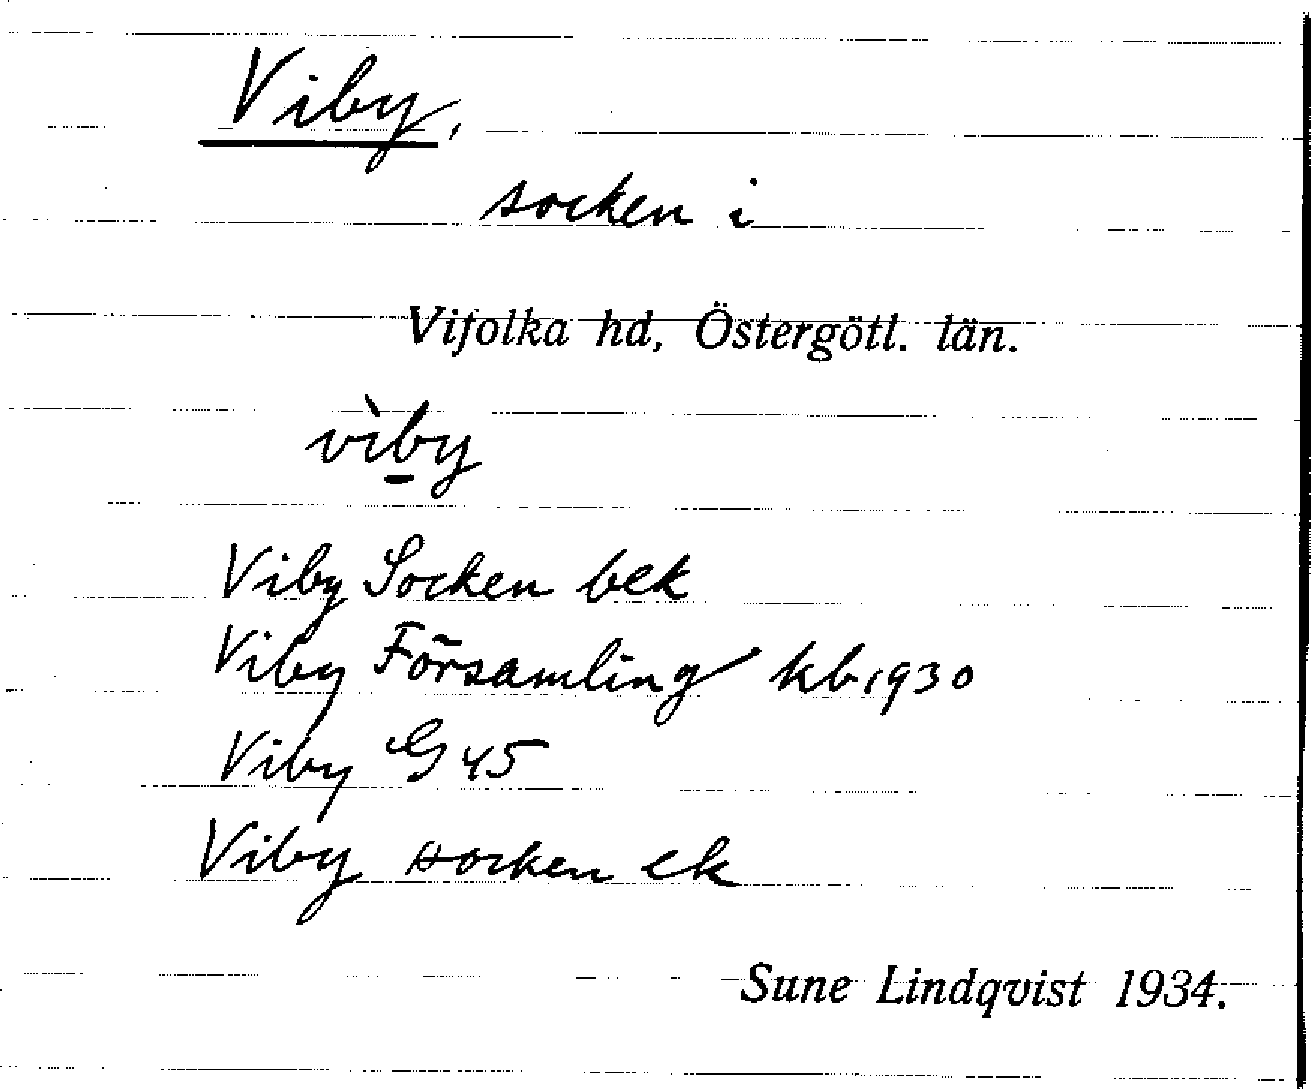 Viby,
socken i
Vifolka hd, Östergötl. län.
vìb̲y
Viby Socken bek
Viby Församling kb 1930
Viby G 45
Viby socken ek
Sune Lindqvist 1934.